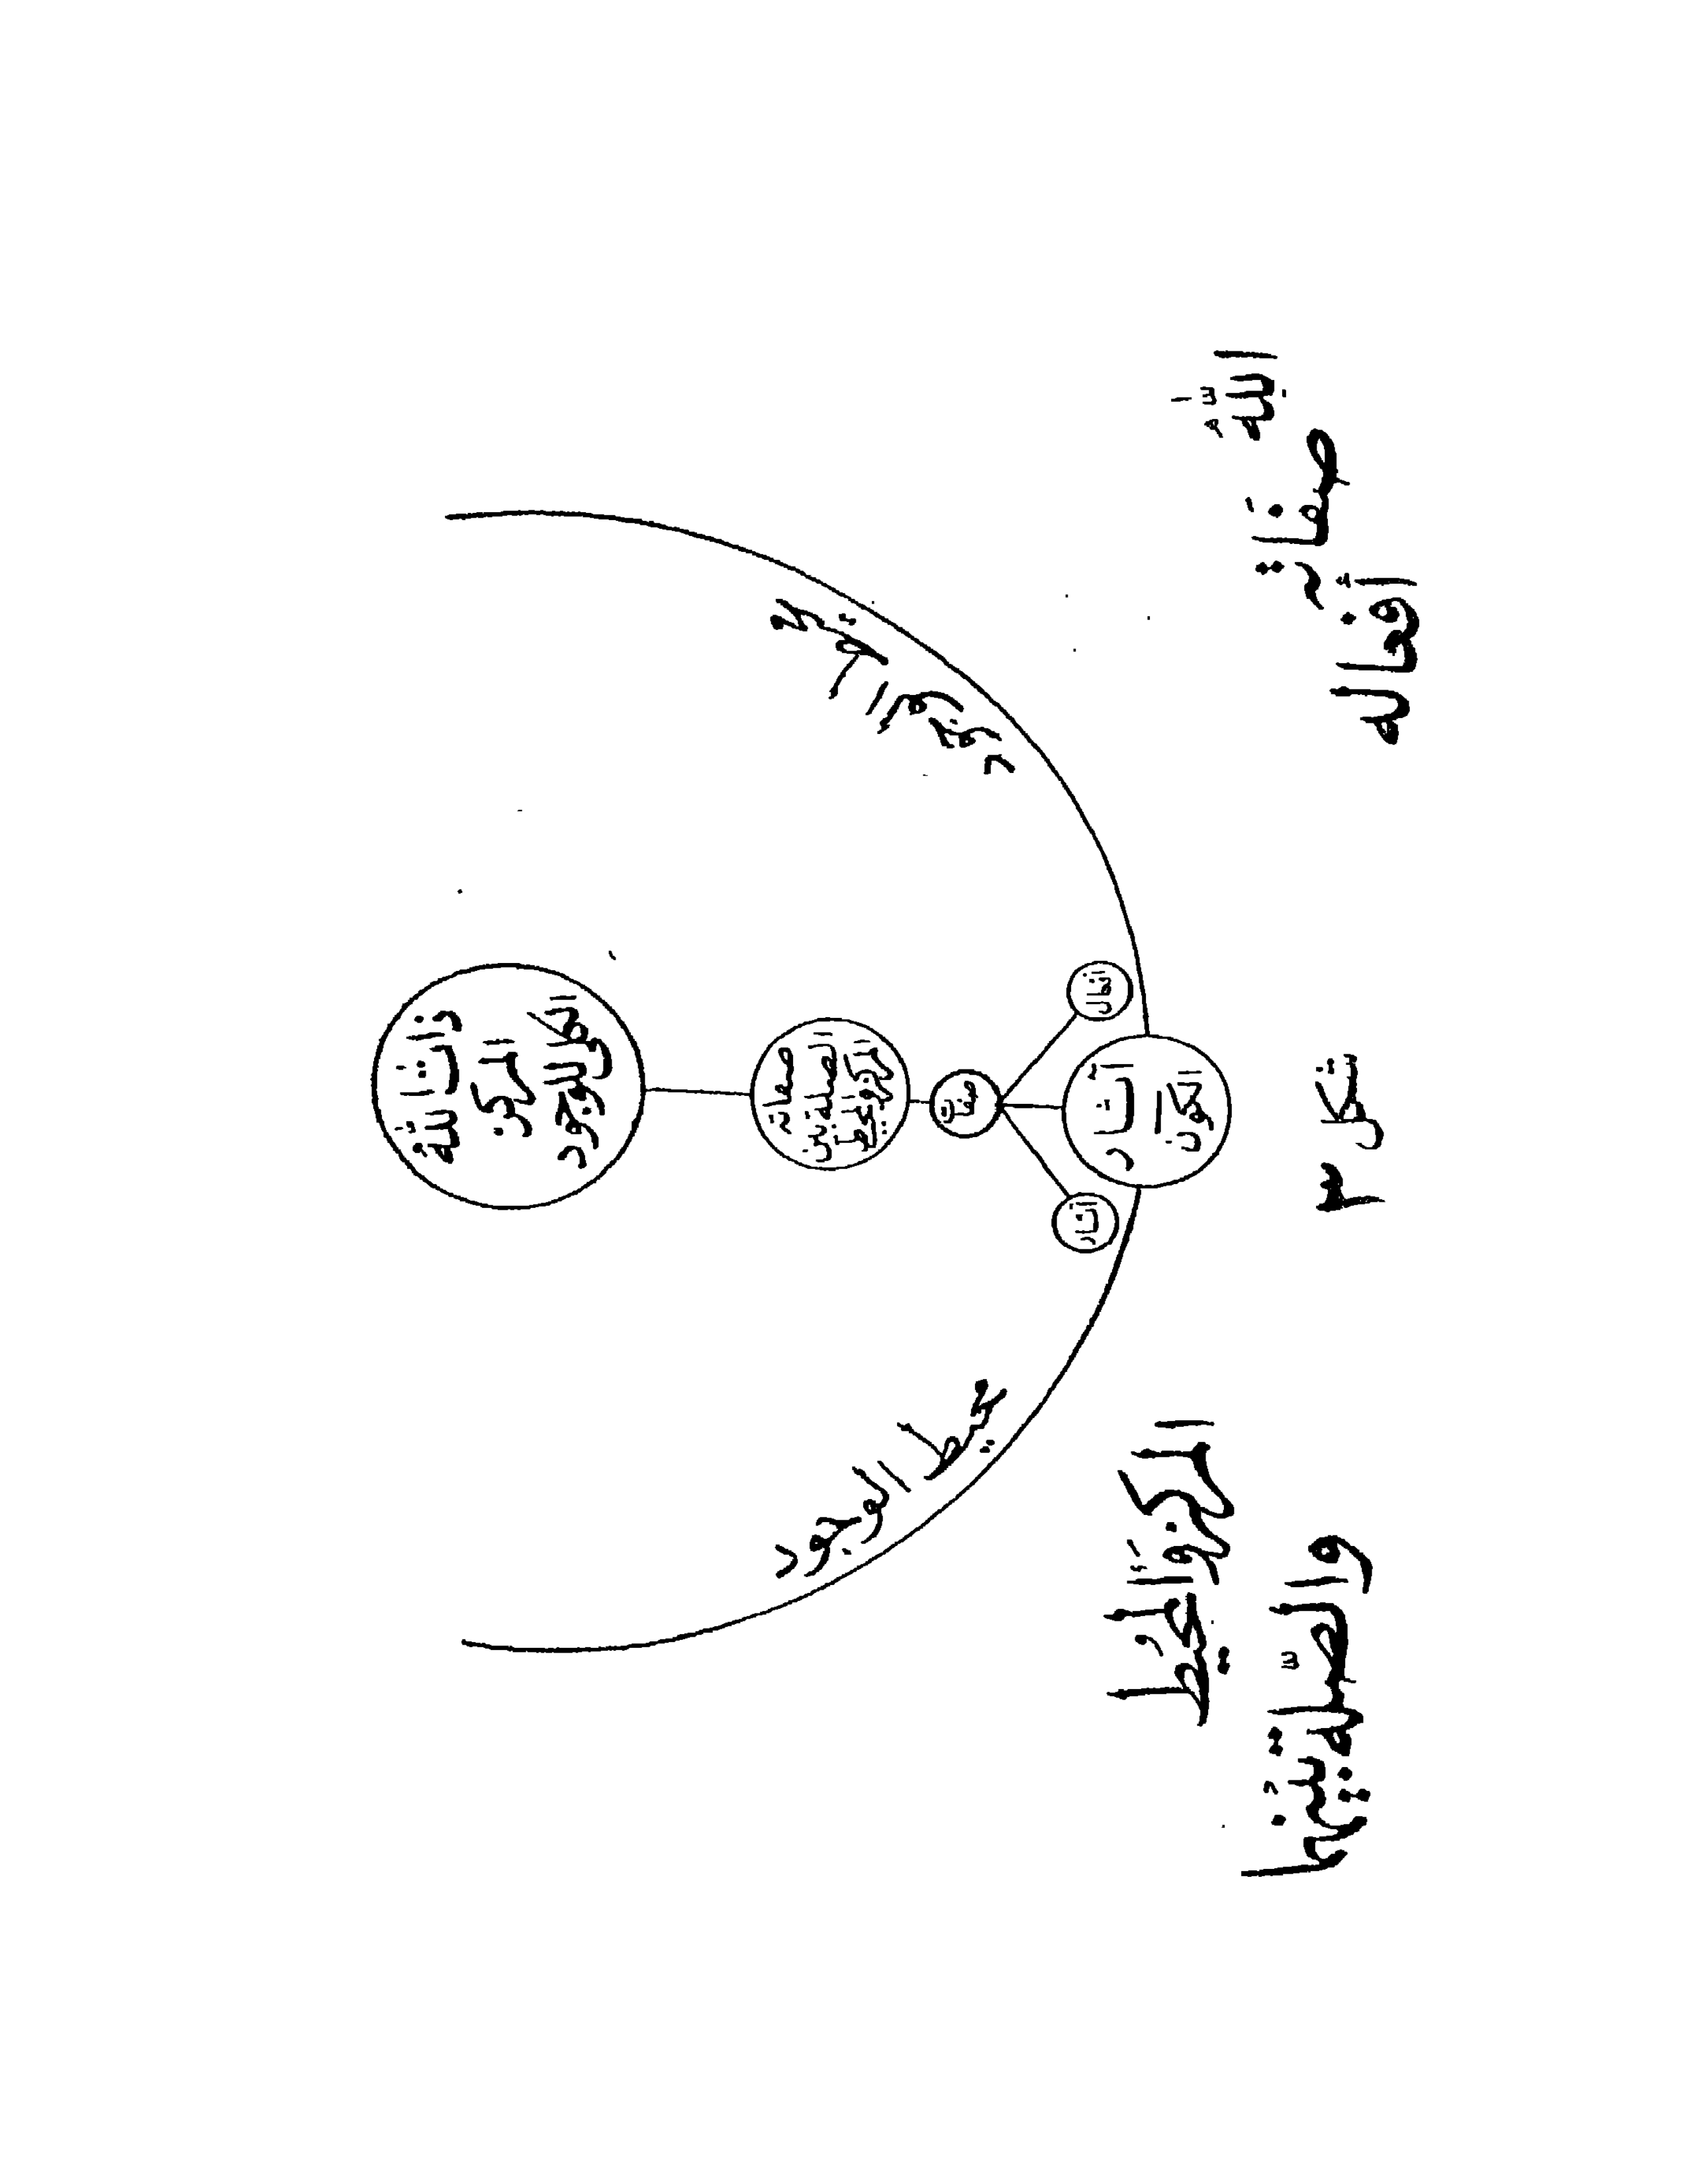 ذات الله
المركز
الوجود
صفاته
الصلة بين
المركز والمحيط
صفاته
افعال
آثار
آثار
الكون
محيط الوجود
الله
صفاته
أفعاله
شكل ٣
المركز والمحيط
والصلة بينهما